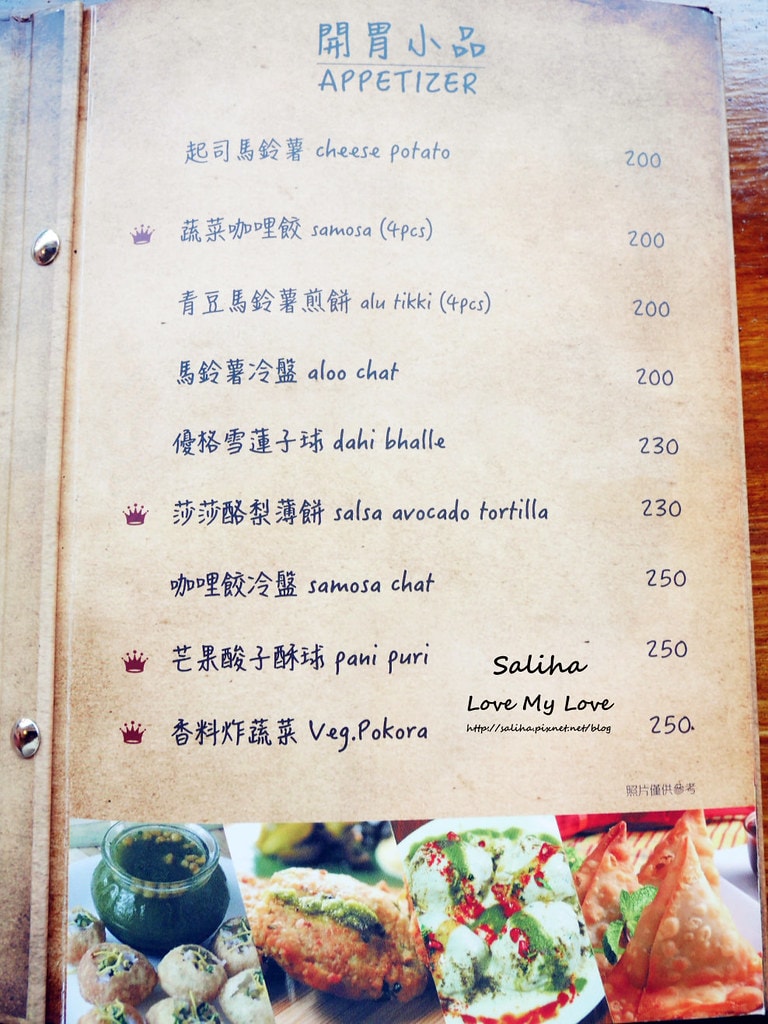 開胃小品
APPETIZER
起司馬鈴薯 cheese potato 200
蔬菜咖哩餃 samosa (4pcs) 200
青豆馬鈴薯煎餅 alu tikki (4pcs) 200
馬鈴薯冷盤 aloo chat 200
優格雪蓮子球 dahi bhalle 230
莎莎酪梨薄餅 salsa avocado tortilla 230
咖哩餃冷盤 samosa chat 250
芒果酸子酥球 pani puri 250
香料炸蔬菜 Veg.Pokora 250
Saliha
Love My Love
http://saliha.pixnet.net/blog
照片僅供參考